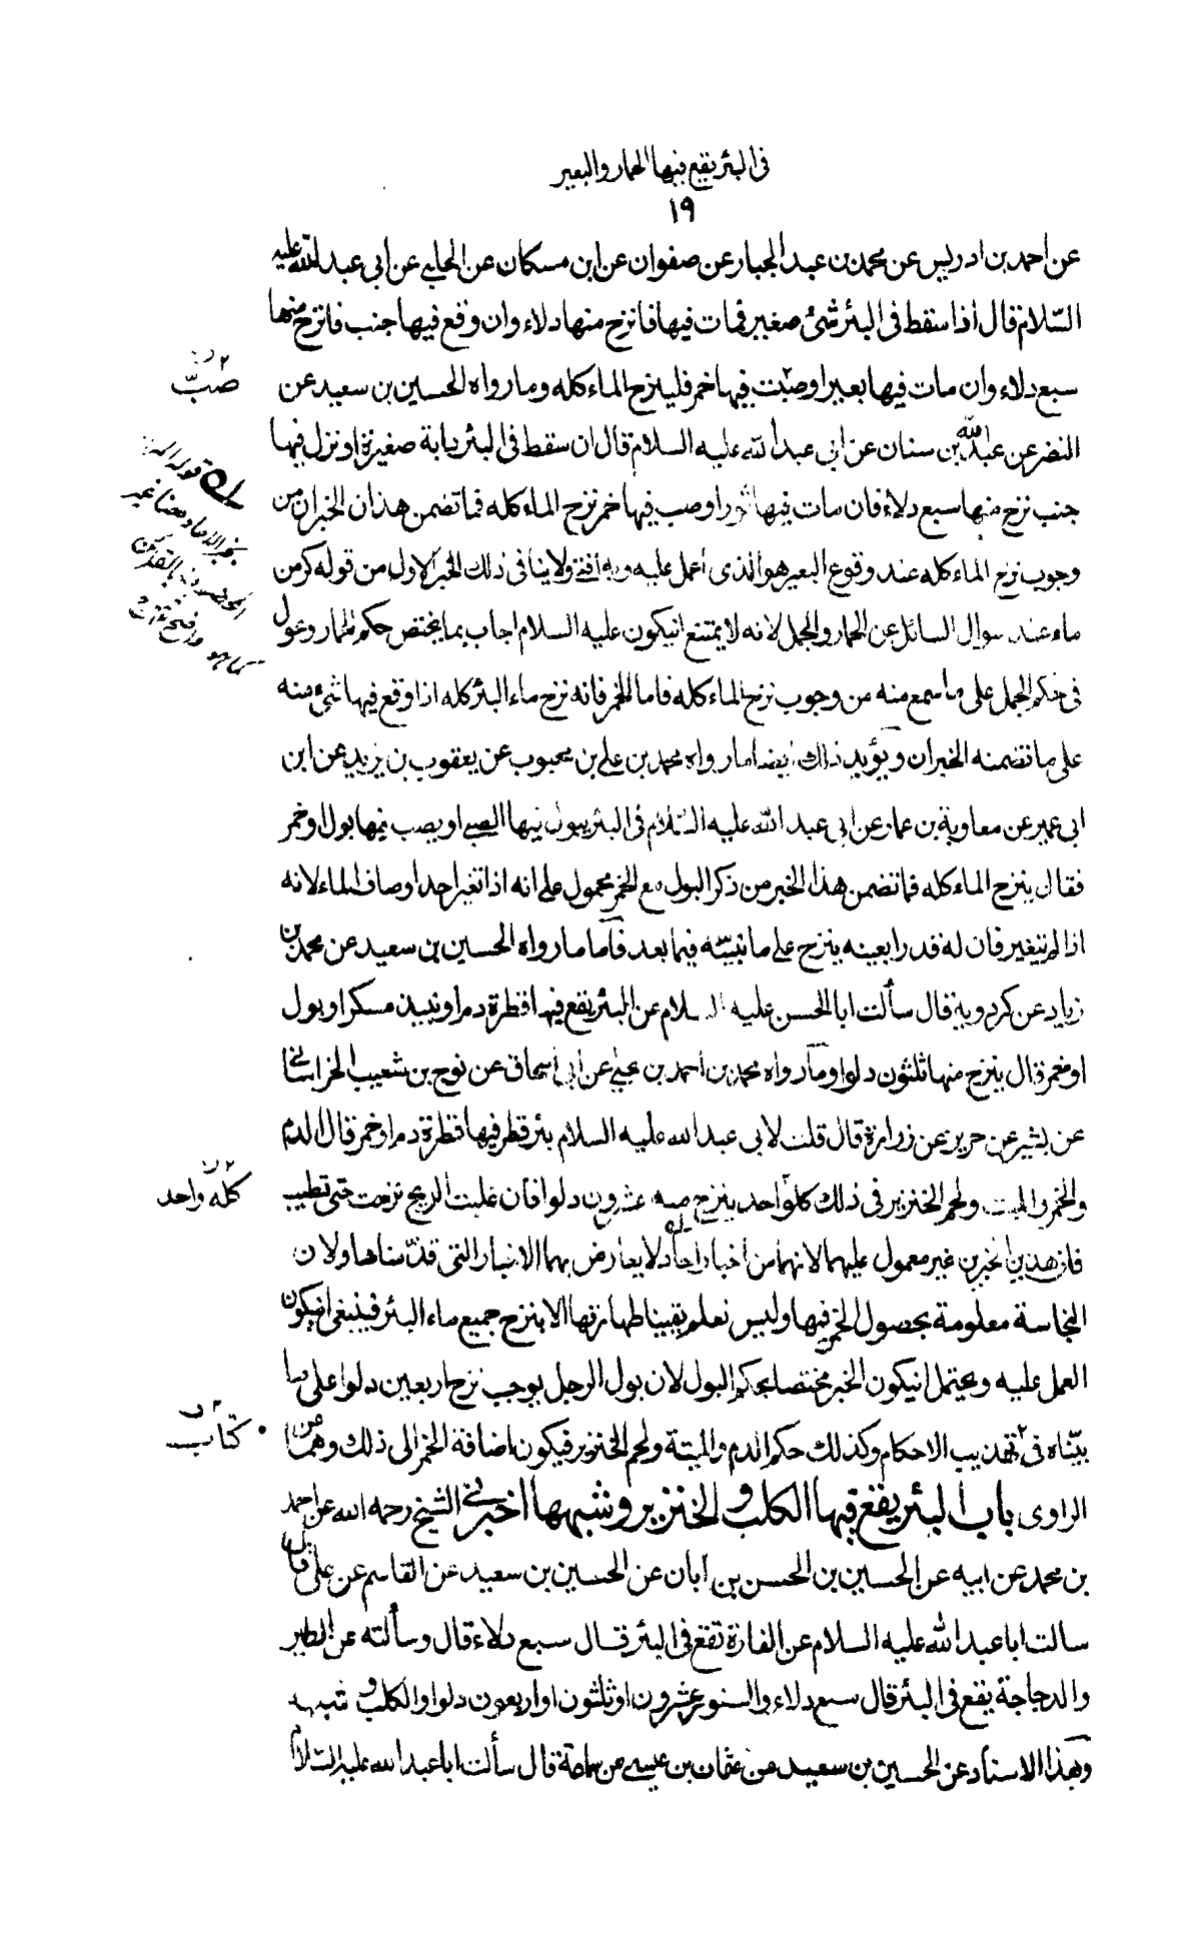 فى البئر يقع فيها الحمار والبعير
١٩
عن احمد بن ادريس عن محمد بن عبد الجبار عن صفوان عن ابن مسكان عن الحلبي عن ابي عبد الله عليه
السّلام قال اذا سقط فى البئر شئ صغير فمات فيها فانزح منها دلاء وان وقع فيها جنب فانزح منها
سبع دلاء وان مات فيها بعير او صبّت فيها خمر فلينزح الماء كله وما رواه الحسين بن سعيد عن
صبّ
النضر عن عبد الله بن سنان عن ابي عبد الله عليه السلام قال ان سقط فى البئر دابة صغيرة او نزل فيها
جنب نزح منها سبع دلاء فان مات فيها ثور او صب فيها خمر نزح الماء كله فما تضمن هذان الخبران من
وجوب نزح الماء كله عند وقوع البعير هو الذى اعمل عليه وبه افتى ولاينافى ذلك الخبر الاول من قوله كر من
ماء عند سوال السائل عن الحمار والجمل لانه لا يمتنع انيكون عليه السلام اجاب بما يختص حكم الحمار وعول
فى حكم الجمل على ما سمع منه من وجوب نزح الماء كله فاما الخمر فانه نزح ماء البئر كله اذا وقع فيها شئ منه
على ما تضمنه الخبران ويؤيد ذلك ايضا ما رواه محمد بن على بن محبوب عن يعقوب بن يزيد عن ابن
ابى عمير عن معاوية بن عمار عن ابى عبد الله عليه السّلام فى البئر يبول فيها الصبى او يصب فيها بول او خمر
فقال ينزح الماء كله فما تضمن هذا الخبر من ذكر البول مع الخمر محمول على انه اذا تغير احد اوصاف الماء لانه
اذا لم يتغير فان له قدرا بعينه ينزح على ما نبيّنه فيما بعد فاما ما رواه الحسين بن سعيد عن محمد بن
زياد عن كردويه قال سألت ابا الحسن عليه السلام عن البئر يقع فيها قطرة دم او نبيذ مسكر او بول
او خمر قال ينزح منها ثلثون دلوا وما رواه محمد بن احمد بن يحيى عن ابى اسحاق عن نوح بن شعيب الخراسانى
عن بشير عن حريز عن زرارة قال قلت لابى عبد الله عليه السلام بئر قطر فيها قطرة دم او خمر قال الدم
والخمر والميت ولحم الخنزير فى ذلك كلّه واحد ينزح منه عشرون دلوا فان غلبت الريح نزحت حتى تطيب
كله واحد
فان هذين الخبرين غير معمول عليهما لانهما من اخبار احاد لا يعارض بهما الاخبار التى قدّمناها ولان
النجاسة معلومة بحصول الخمر فيها وليس نعلم يقينا طهارتها الا بنزح جميع ماء البئر فينبغى انيكون
العمل عليه ويحتمل انيكون الخبر مختصا بحكم البول لان بول الرجل يوجب نزح اربعين دلوا على ما
بيّناه فى تهذيب الاحكام وكذلك حكم الدم والميتة ولحم الخنزير فيكون اضافة الخمر الى ذلك وهما من
كتاب
الراوى باب البئر يقع فيها الكلب والخنزير وشبهها اخبرنى الشيخ رحمه الله عن احمد
بن محمد عن ابيه عن الحسين بن الحسن بن ابان عن الحسين بن سعيد عن القاسم عن على قال
سالت ابا عبد الله عليه السلام عن الفارة تقع فى البئر قال سبع دلاء قال وسألته عن الطير
والدجاجة يقع فى البئر قال سبع دلاء والسنور عشرون او ثلثون او اربعون دلوا والكلب وشبهه
وبهذا الاسناد عن الحسين بن سعيد عن عثمان بن عيسى عن سماعة قال سألت ابا عبد الله عليه السّلام